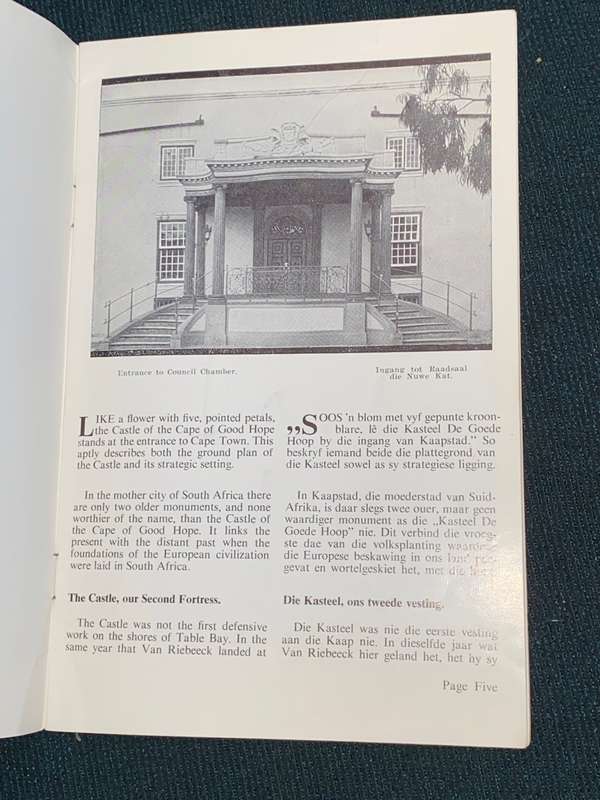 Entrance to Council Chamber.
Ingang tot Raadsaal
die Nuwe Kat.
LIKE a flower with five, pointed petals,
the Castle of the Cape of Good Hope
stands at the entrance to Cape Town. This
aptly describes both the ground plan of
the Castle and its strategic setting.
In the mother city of South Africa there
are only two older monuments, and none
worthier of the name, than the Castle of
the Cape of Good Hope. It links the
present with the distant past when the
foundations of the European civilization
were laid in South Africa.
The Castle, our Second Fortress.
The Castle was not the first defensive
work on the shores of Table Bay. In the
same year that Van Riebeeck landed at
„SOOS 'n blom met vyf gepunte kroon-
blare, lê die Kasteel De Goede
Hoop by die ingang van Kaapstad.” So
beskryf iemand beide die plattegrond van
die Kasteel sowel as sy strategiese ligging.
In Kaapstad, die moederstad van Suid-
Afrika, is daar slegs twee ouer, maar geen
waardiger monument as die „Kasteel De
Goede Hoop” nie. Dit verbind die vroeg-
ste dae van die volksplanting
die Europese beskawing in ons land
gevat en wortelgeskiet het, met die
Die Kasteel, ons tweede vesting.
Die Kasteel was nie die eerste vesting
aan die Kaap nie. In dieselfde jaar wat
Van Riebeeck hier geland het, het hy sy
Page Five